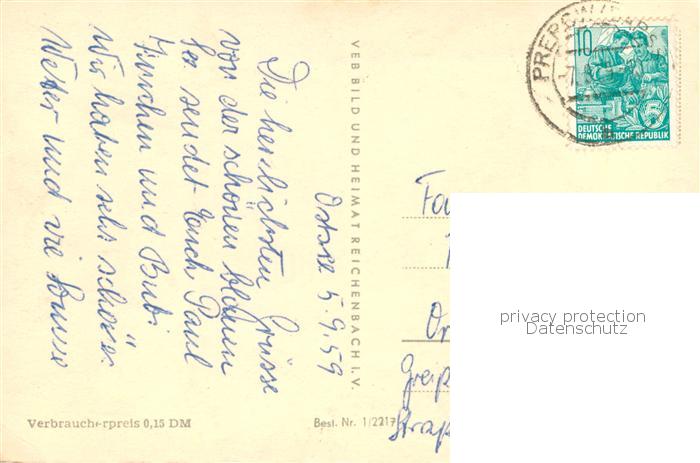 Ostsee 5.9.59
Die herzlichsten Grüsse
von der schönen blauen
See sendet Euch Paul
und Bubi.
Wir haben sehr schönes
Wetter und viel Sonne
VEB BILD UND HEIMAT REICHENBACH I. V.
Verbraucherpreis 0,15 DM
Best. Nr. 1/2217
PREROW
10
5
DEUTSCHE
DEMOKRATISCHE REPUBLIK
Greif
Straß
privacy protection
Datenschutz